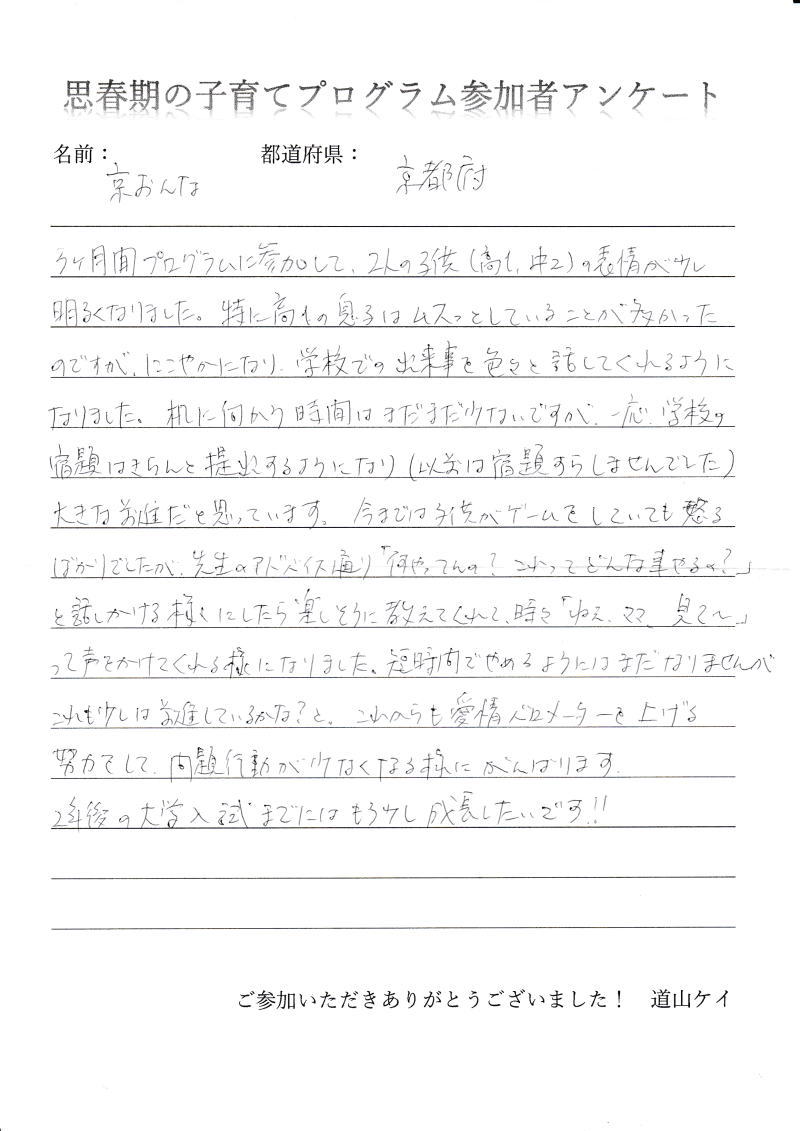 思春期の子育てプログラム参加者アンケート
名前： 京おんな 都道府県： 京都府
3ヶ月間プログラムに参加して、2人の子供(高1、中2)の表情が少し
明るくなりました。特に高1の息子はムスっとしていることが多かった
のですが、にこやかになり、学校での出来事を色々と話してくれるように
なりました。机に向かう時間はまだまだ少ないですが、一応、学校の
宿題はきちんと提出するようになり(以前は宿題すらしませんでした)
大きな前進だと思っています。今までは子供がゲームをしていても怒る
ばかりでしたが、先生のアドバイス通り「何やってんの？これってどんな事やるの？」
と話しかける様にしたら楽しそうに教えてくれて、時々「ねえ、ママ、見て〜」
って声をかけてくれる様になりました。短時間でやめるようにはまだなりませんが
これも少しは前進しているかな？と。これからも愛情バロメーターを上げる
努力をして、問題行動が少なくなる様にがんばります。
2年後の大学入試までにはもう少し成長したいです!!
ご参加いただきありがとうございました！ 道山ケイ